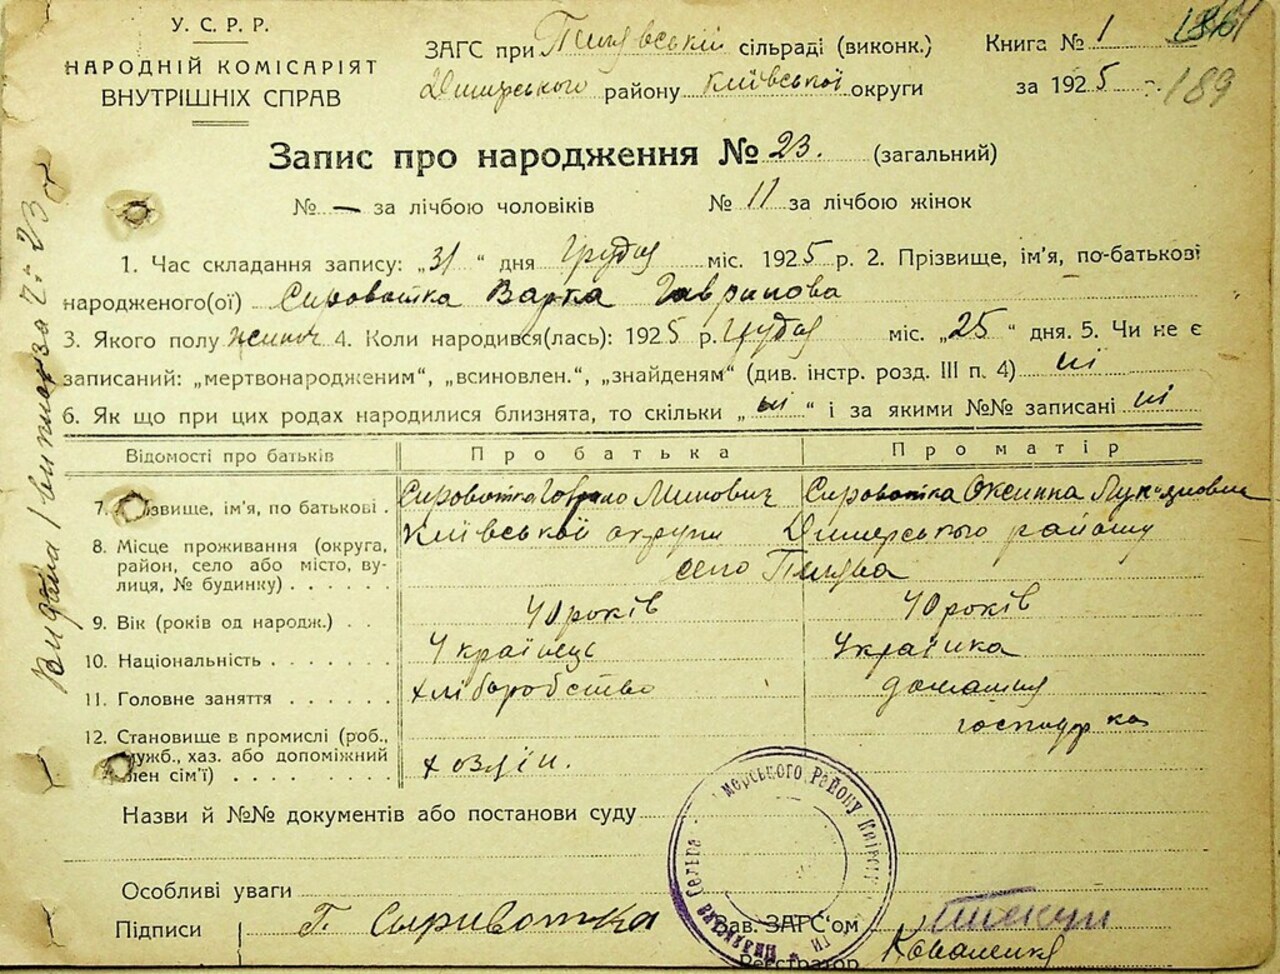 У. С. Р. Р.
НАРОДНІЙ КОМІСАРІЯТ
ВНУТРІШНІХ СПРАВ
ЗАГС при сільраді (виконк.)
Димерського району Київської округи
Книга № 1
за 1925 р. 189
Запис про народження № 23. (загальний)
№ — за лічбою чоловіків № 11 за лічбою жінок
1. Час складання запису: „31 “ дня Грудня міс. 1925 р. 2. Прізвище, ім'я, по-батькові
народженого(ої) Сировотка Варка Гаврилова
3. Якого полу жіноч 4. Коли народився(лась): 1925 р. Грудня міс. „25 “ дня. 5. Чи не є
записаний: „мертвонародженим“, „всиновлен.“, „знайденям“ (див. інстр. розд. III п. 4) ні
6. Як що при цих родах народилися близнята, то скільки „ ні “ і за якими №№ записані ні
Відомості про батьків Про батька Про матір
7. Прізвище, ім'я, по батькові . Сировотка Гаврило Минович Сировотка Оксинка Лук'яновна
8. Місце проживання (округа, район, село або місто, вулиця, № будинку) . . . . . . Київської округи Димерського району
село
9. Вік (років од народж.) . . 40 років 40 років
10. Національність . . . . . . . Українець Українка
11. Головне заняття . . . . . . хліборобство домашня
господарка
12. Становище в промислі (роб., служб., хаз. або допоміжний член сім'ї) . . . . . . . . . хозяїн.
Назви й №№ документів або постанови суду
Особливі уваги
Підписи Г. Сыривотка Зав. ЗАГС‘ом
Реєстратор Коваленко
мерського Району Київсь
Сельра